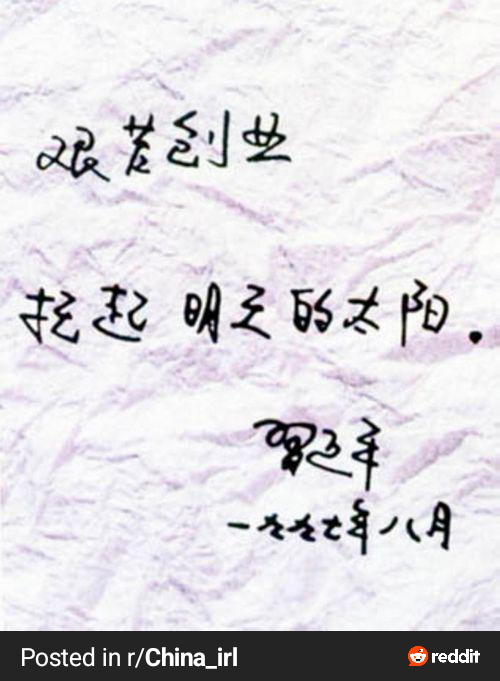 艰苦创业
托起明天的太阳.
一九九七年八月
Posted in r/China_irl
reddit